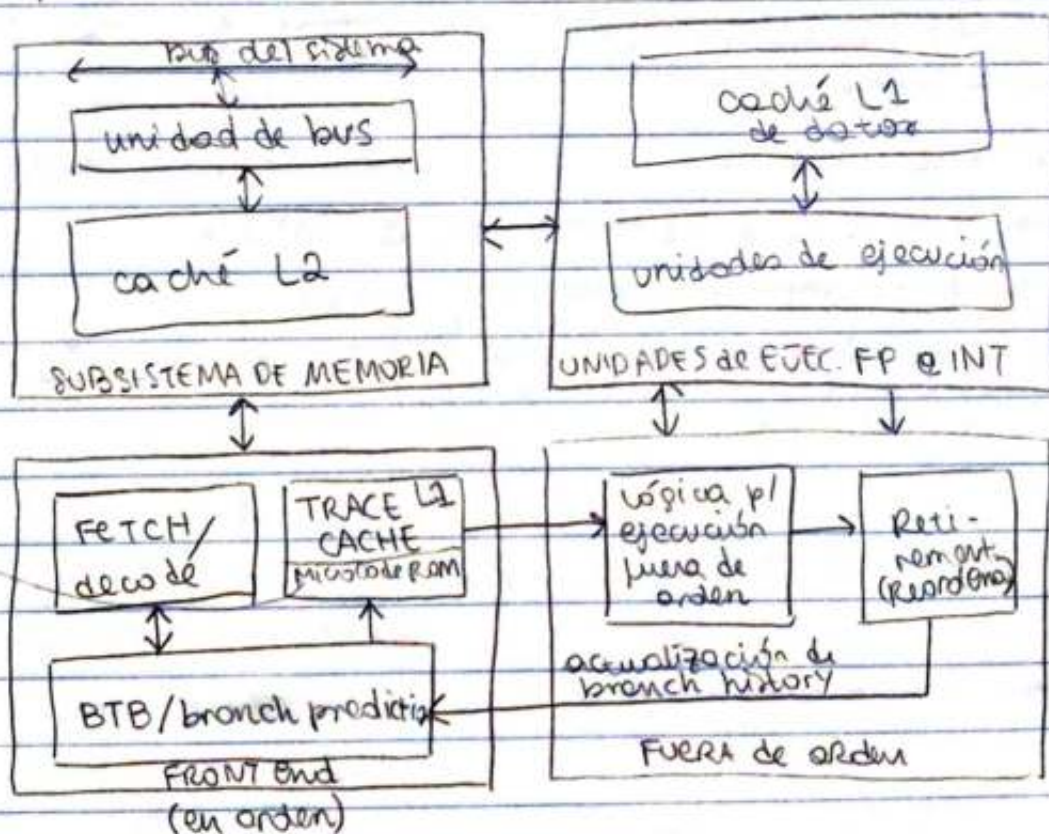 bus del sistema
unidad de bus
caché L2
SUBSISTEMA DE MEMORIA
caché L1
de datos
unidades de ejecución
UNIDADES de EJEC. FP e INT
FETCH/
decode
TRACE L1
CACHE
Microcode ROM
BTB/branch predictio
FRONT end
(en orden)
Lógica p/
ejecución
fuera de
orden
Reti-
rement
(Reordena)
actualización de
branch history
FUERA de orden